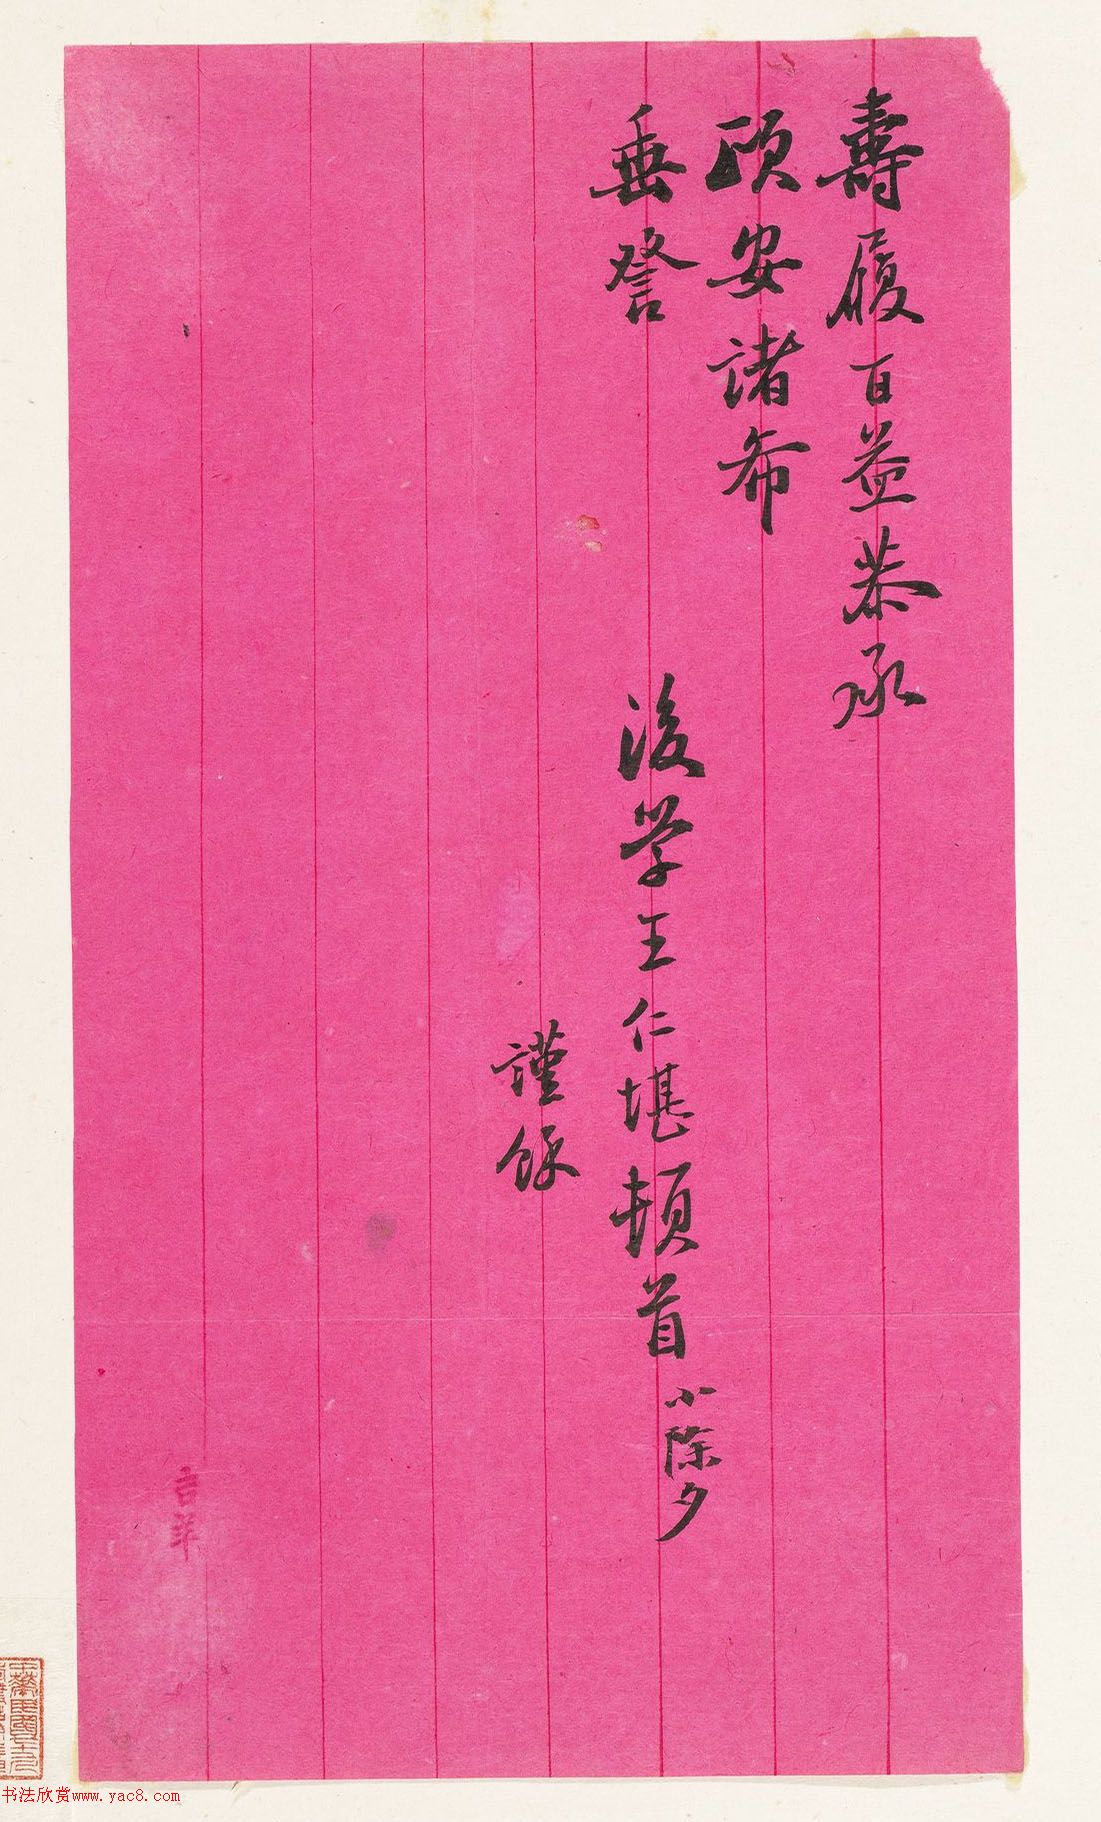 壽履百益恭承
頤安諸希
垂詧
後學王仁堪頓首 小除夕
謹餘
吉祥
书法欣赏www.yac8.com